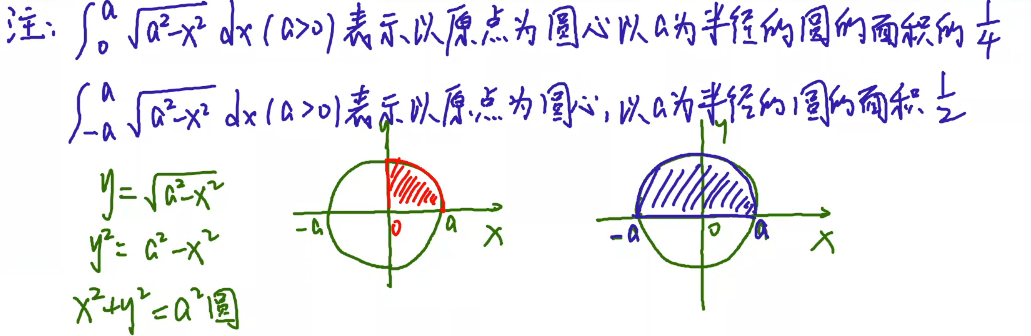 注: ∫₀ᵃ √(a²-x²) dx (a>0) 表示以原点为圆心以a为半径的圆的面积的 1/4
∫₋ₐᵃ √(a²-x²) dx (a>0) 表示以原点为圆心, 以a为半径的圆的面积 1/2
y = √(a²-x²)
y² = a²-x²
x²+y²=a² 圆
-a 0 a x
y
-a 0 a x